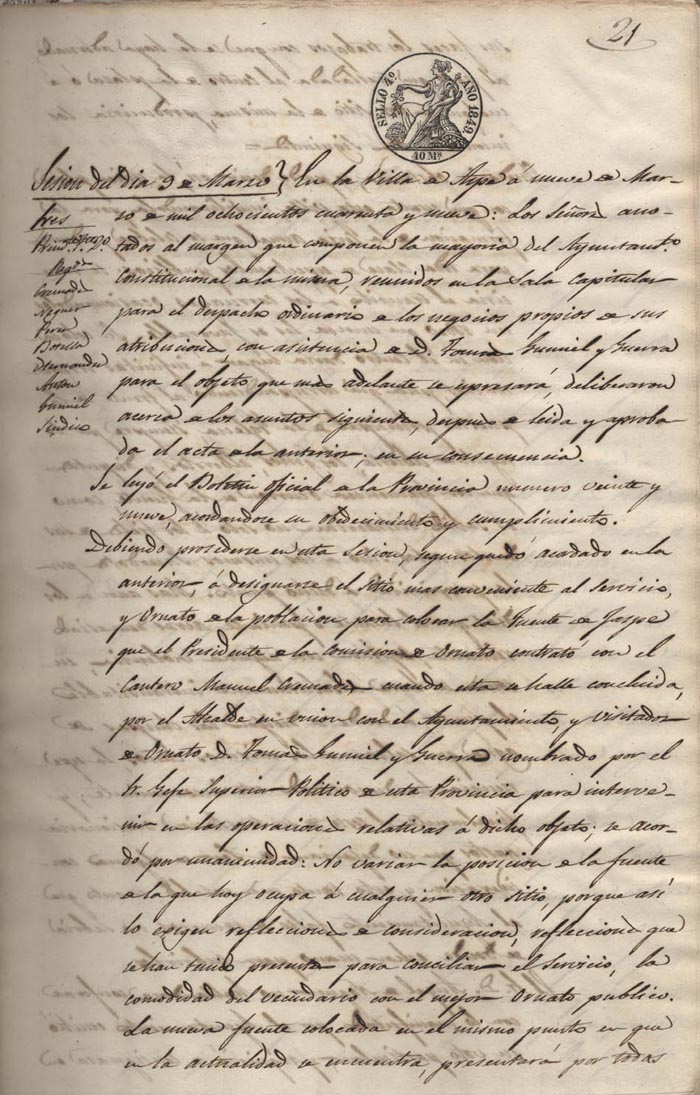 21
SELLO 4º AÑO 1849
40 Mˢ
Sesion del dia 9 de Marzo} En la Villa de Aspe á nueve de Mar-
Sres
zo de mil ochocientos cuarenta y nueve: Los Señores ano-
tados al margen que componen la mayoria del Ayuntamtº.
Regs
constitucional de la misma, reunidos en la Sala Capitular
Cremades
para el despacho ordinario de los negocios propios de sus
Perez
Botella
atribuciones, con asistencia de D. Tomas Gumiel y Guerra
Anton
para el objeto que mas adelante se espresará, deliberaron
Gumiel
acerca de los asuntos siguientes, despues de leida y aproba-
Sindico
da el acta de la anterior; en su consecuencia.
Se leyó el Boletin oficial de la Provincia numero veinte y
nueve, acordandose su obedecimiento y cumplimiento.
Debiendo procederse en esta Sesion, segun quedó acordado en la
anterior, á designarse el Sitio mas conveniente al Servicio,
y Ornato de la poblacion para colocar la Fuente de Jaspe
que el Presidente de la Comision de Ornato contrató con el
Cantero Manuel Cremades cuando esta se halle concluida,
por el Alcalde en union con el Ayuntamiento, y Visitador
de Ornato D. Tomas Gumiel y Guerra nombrado por el
Sr. Gefe Superior Politico de esta Provincia para interve-
nir en las operaciones relativas á dicho objeto; se acor-
dó por unanimidad: No variar la posicion de la fuente
de la que hoy ocupa á cualquier otro sitio, porque asi
lo exigen reflecciones de consideracion, reflecciones que
se han tenido presentes para conciliar el Servicio, la
comodidad del vecindario con el mejor Ornato publico.
La nueva fuente colocada en el mismo punto en que
en la actualidad se encuentra, presentará por todas